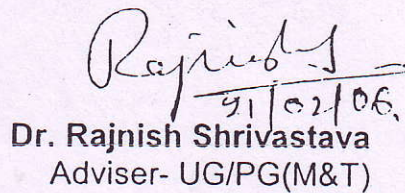 Rajnish
21/02/06.
Dr. Rajnish Shrivastava
Adviser- UG/PG(M&T)